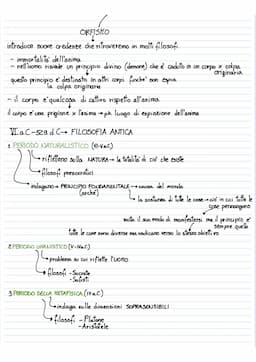 ORFISMO
introduce nuove credenze che ritroveremo in molti filosofi.
- immortalità dell'anima
- nell'uomo risiede un principio divino (demone) che è caduto in un corpo x colpa originaria
questo principio è destinato in altri corpi finché non espia la colpa originaria
- il corpo è qualcosa di cattivo rispetto all'anima
il corpo è una prigione x l'anima → luogo di espiazione dell'anima
VI a.C - 529 d.C → FILOSOFIA ANTICA
1. PERIODO NATURALISTICO (VI-V a.C)
riflettono sulla NATURA → la totalità di ciò che esiste
filosofi presocratici
indagano → PRINCIPIO FONDAMENTALE → causa del mondo
(archè)
la sostanza di tutte le cose → ciò in cui tutte le cose permangono
muta il suo modo di manifestarsi ma il principio è sempre quello
tutte le cose sono diverse ma verso lo stesso obiettivo
2. PERIODO UMANISTICO (V-IV a.C)
problema su cui riflette l'UOMO
filosofi - Socrate
- Sofisti
3. PERIODO DELLA METAFISICA (IV a.C)
indaga sulle dimensioni SOPRASENSIBILI
filosofi - Platone
- Aristotele